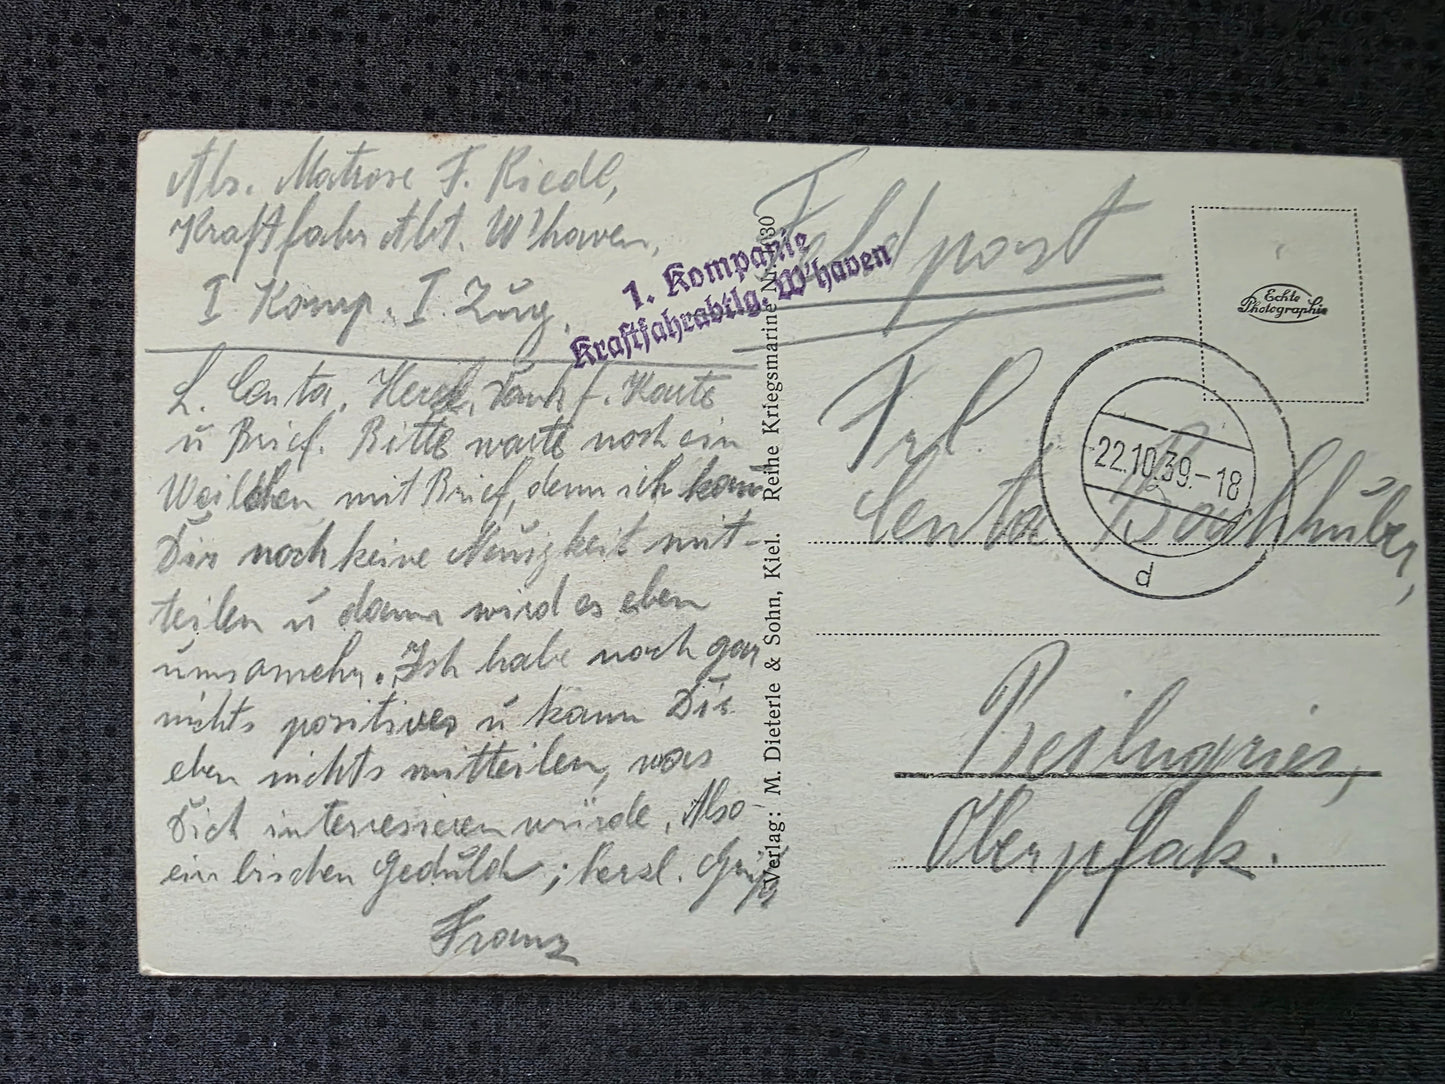 Abs. Matrose F. Riedl,
Kraftfahr Abt. W'haven,
I Komp. I. Zug.
L. Centa. Herzl. Dank f. Karte
u Brief. Bitte warte noch ein
Weilchen mit Brief, denn ich kann
Dir noch keine Neuigkeit mit-
teilen u dann wird es eben
umsomehr. Ich habe noch gar
nichts positives u kann Dir
eben nichts mitteilen, was
Dich interessieren würde. Also
ein bischen Geduld; herzl. Gruß
Franz
1. Kompanie
Kraftfahrabtlg. W'haven
Verlag: M. Dieterle & Sohn, Kiel. Reihe Kriegsmarine
Feldpost
Echte
Photographie
22.10.39.-18
d
Frl.
Centa
Beilngries,
Oberpfalz.